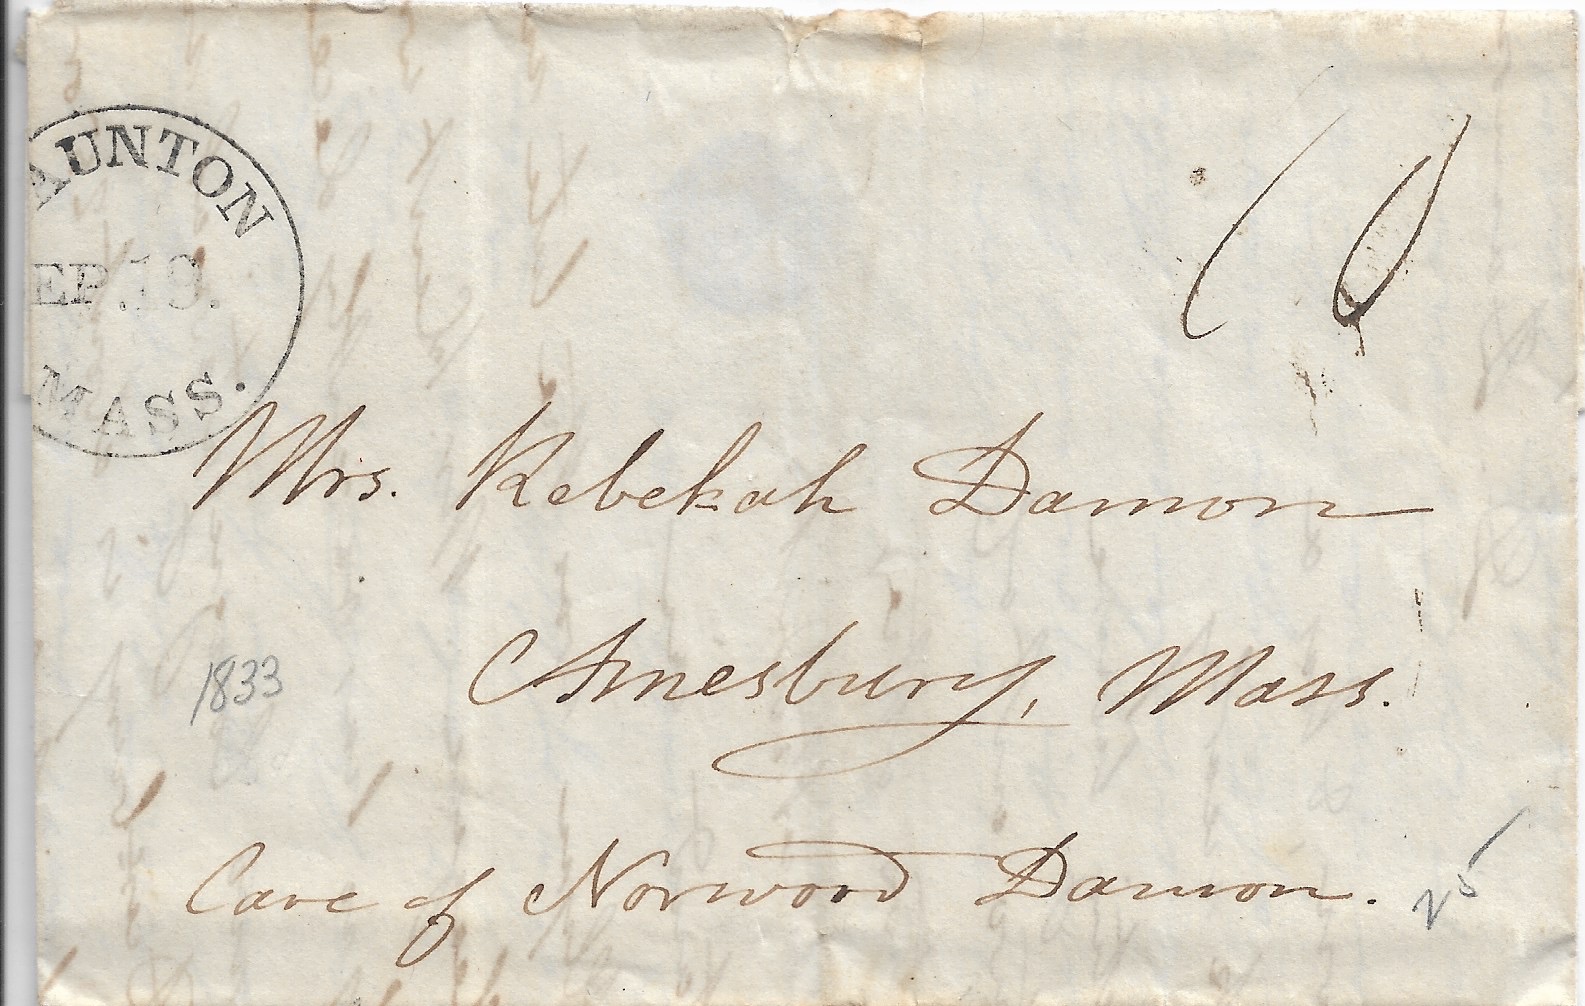 AUNTON
EP. 19.
MASS.
10
Mrs. Rebekah Damon
Amesbury, Mass.
1833
Care of Norwood Damon.
25